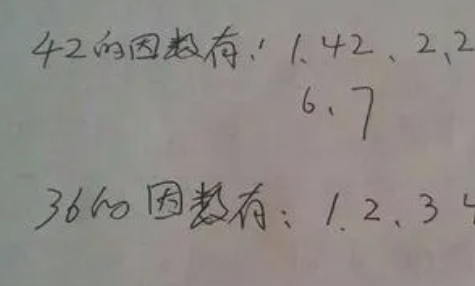 42的因数有：1、42、2、2
6、7
36的因数有：1、2、3 4